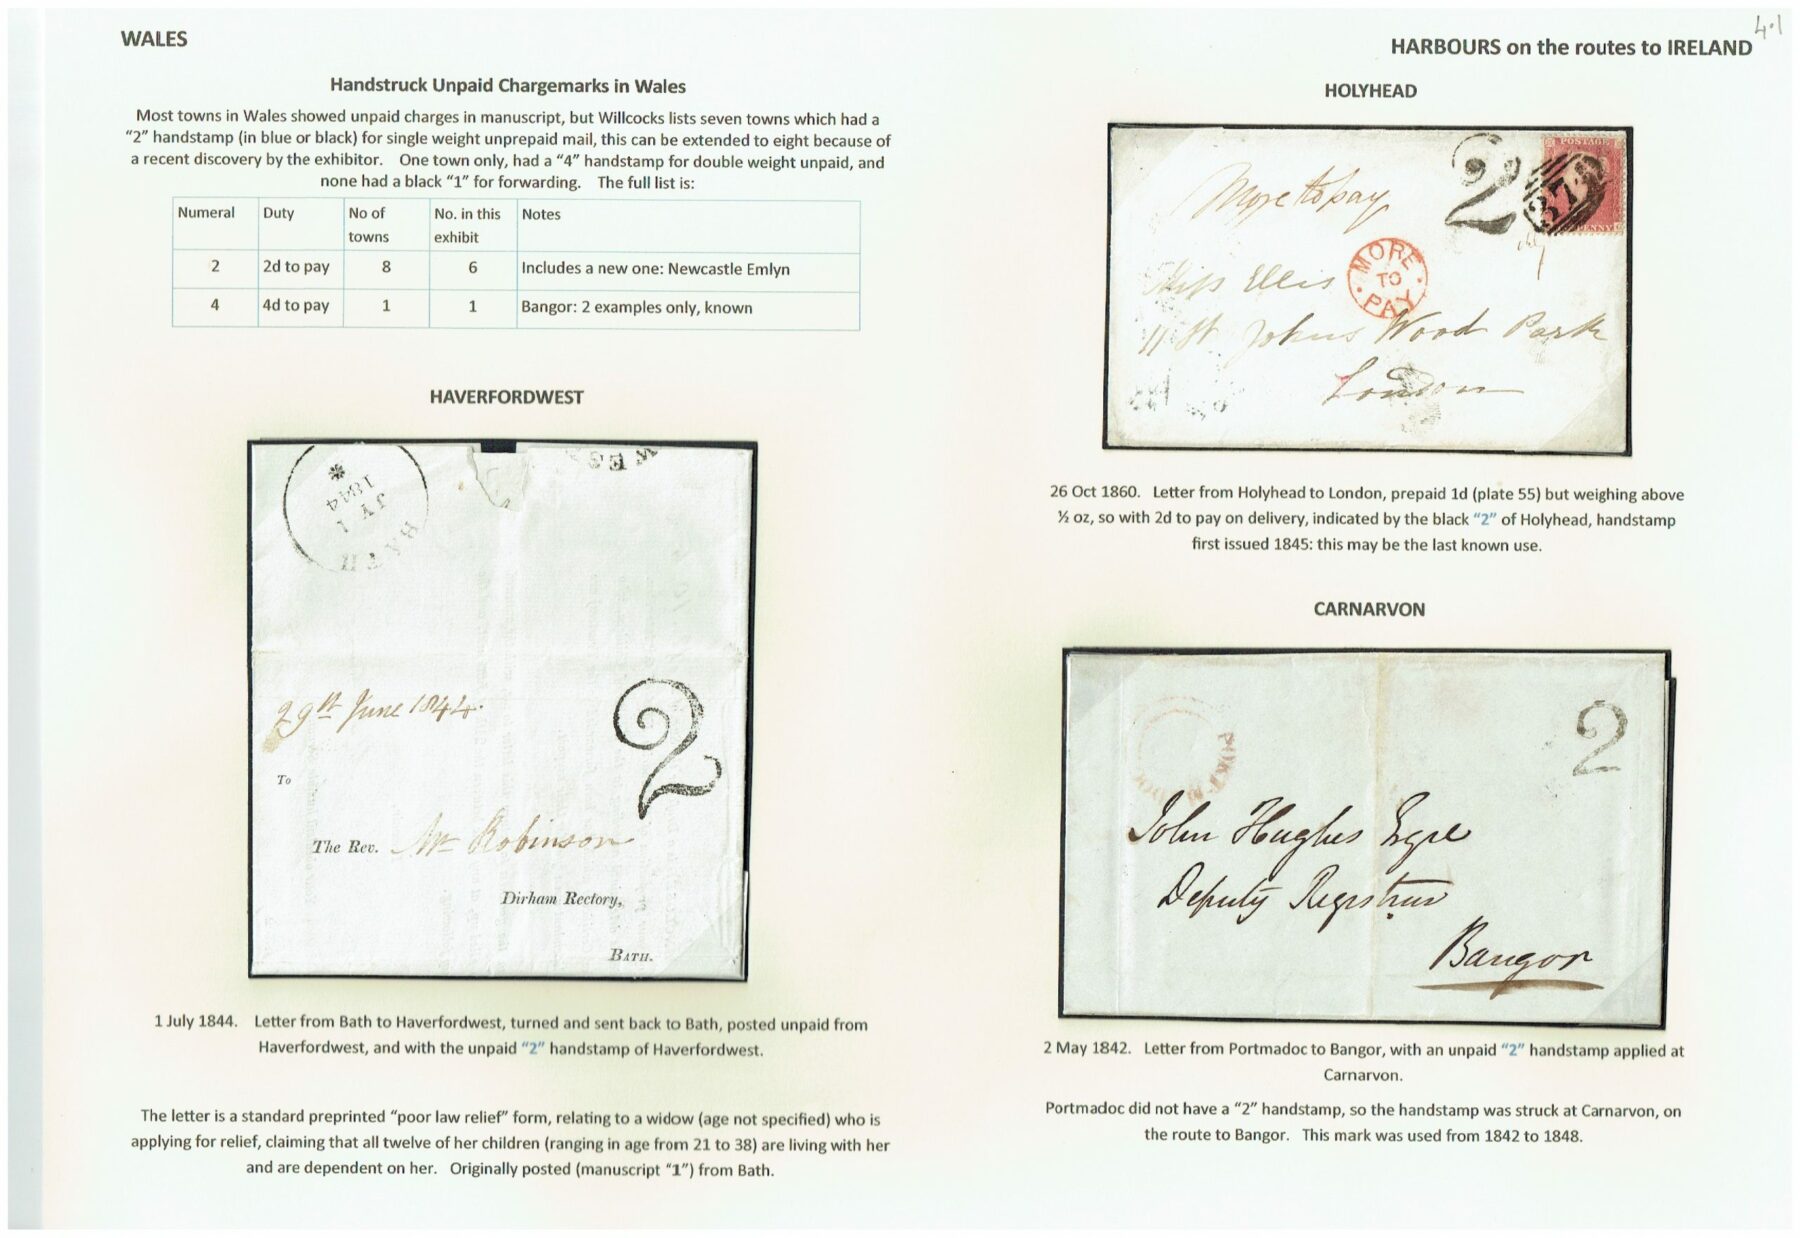 WALES
Handstruck Unpaid Chargemarks in Wales
Most towns in Wales showed unpaid charges in manuscript, but Willcocks lists seven towns which had a
“2” handstamp (in blue or black) for single weight unprepaid mail, this can be extended to eight because of
a recent discovery by the exhibitor. One town only, had a “4” handstamp for double weight unpaid, and
none had a black “1” for forwarding. The full list is:
Numeral Duty No of towns No. in this exhibit Notes
2 2d to pay 8 6 Includes a new one: Newcastle Emlyn
4 4d to pay 1 1 Bangor: 2 examples only, known
HAVERFORDWEST
BATH
JY 1
1844
WES
29th June 1844.
2
To
The Rev. Mr Robinson
Dirham Rectory,
BATH.
1 July 1844. Letter from Bath to Haverfordwest, turned and sent back to Bath, posted unpaid from
Haverfordwest, and with the unpaid “2” handstamp of Haverfordwest.
The letter is a standard preprinted “poor law relief” form, relating to a widow (age not specified) who is
applying for relief, claiming that all twelve of her children (ranging in age from 21 to 38) are living with her
and are dependent on her. Originally posted (manuscript “1”) from Bath.
4.1
HARBOURS on the routes to IRELAND
HOLYHEAD
POSTAGE
2
37
PENNY
More to pay
MORE
TO
PAY
Miss Ellis
11 St Johns Wood Park
London
26 Oct 1860. Letter from Holyhead to London, prepaid 1d (plate 55) but weighing above
½ oz, so with 2d to pay on delivery, indicated by the black “2” of Holyhead, handstamp
first issued 1845: this may be the last known use.
CARNARVON
2
John Hughes Esqre
Deputy Registrar
Bangor
2 May 1842. Letter from Portmadoc to Bangor, with an unpaid “2” handstamp applied at
Carnarvon.
Portmadoc did not have a “2” handstamp, so the handstamp was struck at Carnarvon, on
the route to Bangor. This mark was used from 1842 to 1848.